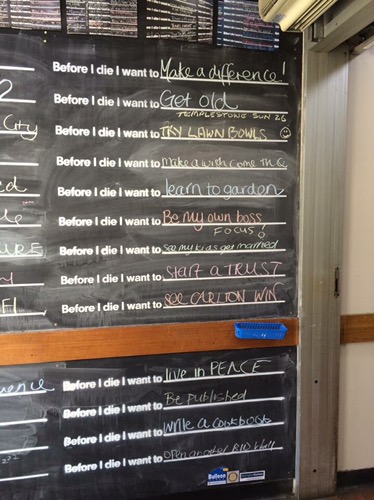 Before I die I want to Make a difference!
2
Before I die I want to Get old
TEMPLESTOWE SUN 26
City
Before I die I want to TRY LAWN BOWLS ☺
Before I die I want to make a wish come true
ed
Before I die I want to learn to garden
Before I die I want to Be my own boss
FOCUS!
URE
Before I die I want to see my kids get married
Before I die I want to start a TRUST
FI
Before I die I want to SEE CARLTON WIN
Before I die I want to live in PEACE
uence
Before I die I want to Be published
Before I die I want to write a cookbook
Before I die I want to open another
Bulleen